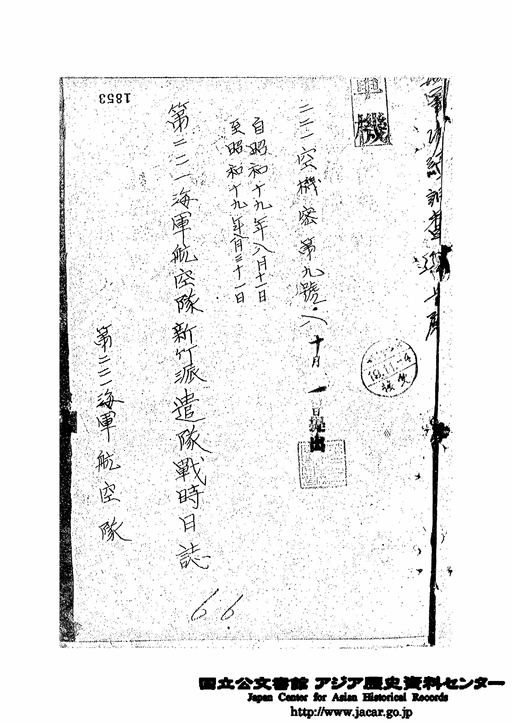 軍機
二二一空機密第九號ノ八
十月一日提出
自昭和十九年八月十一日
至昭和十九年八月三十一日
第二二一海軍航空隊新竹派遣隊戰時日誌
第二二一海軍航空隊
1853
66.
国立公文書館 アジア歴史資料センター
Japan Center for Asian Historical Records
http://www.jacar.go.jp